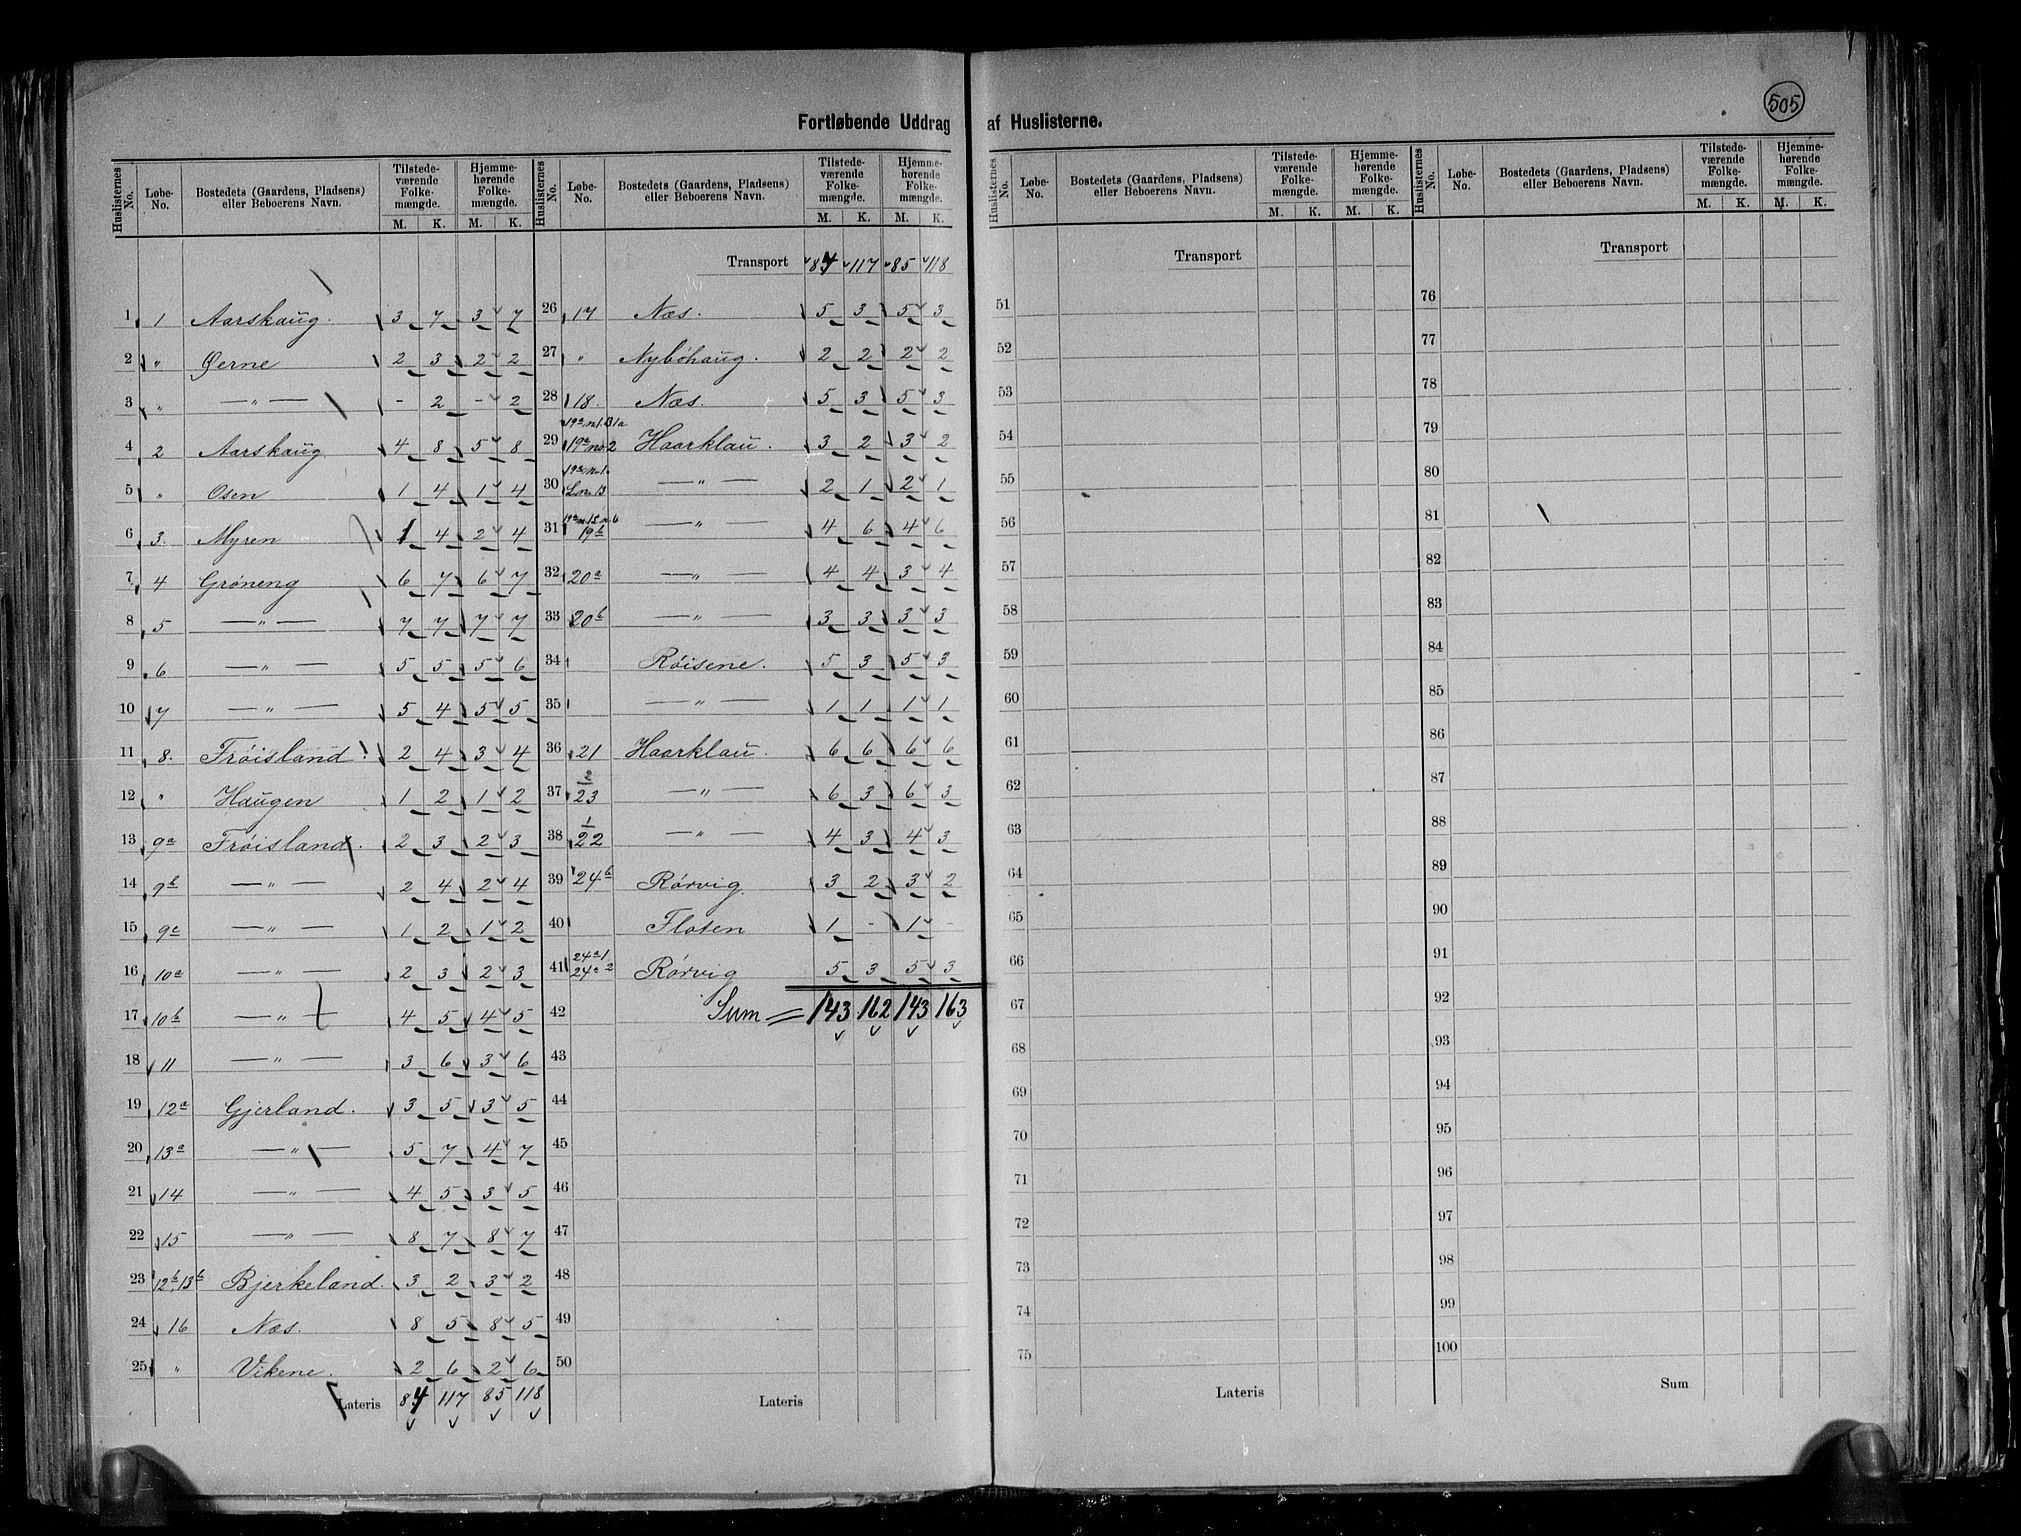 505
Fortløbende Uddrag af Huslisterne.
Huslisternes No. Løbe-No. Bostedets (Gaardens, Pladsens) eller Beboerens Navn. Tilstedeværende Folkemængde. M. K. Hjemmehørende Folkemængde. M. K.
Huslisternes No. Løbe-No. Bostedets (Gaardens, Pladsens) eller Beboerens Navn. Tilstedeværende Folkemængde. M. K. Hjemmehørende Folkemængde. M. K.
Huslisternes No. Løbe-No. Bostedets (Gaardens, Pladsens) eller Beboerens Navn. Tilstedeværende Folkemængde. M. K. Hjemmehørende Folkemængde. M. K.
Huslisternes No. Løbe-No. Bostedets (Gaardens, Pladsens) eller Beboerens Navn. Tilstedeværende Folkemængde. M. K. Hjemmehørende Folkemængde. M. K.
1 1 Aarskaug. 3 7 3 7
2 " Øerne 2 3 2 2
3 " — " — - 2 - 2
4 2 Aarskaug 4 8 5 8
5 " Osen 1 4 1 4
6 3. Myren 1 4 2 4
7 4 Grøneng 6 7 6 7
8 5 — " — 7 7 7 7
9 6 — " — 5 5 5 6
10 7 — " — 5 4 5 5
11 8. Frøisland 2 4 3 4
12 " Haugen 1 2 1 2
13 9a Frøisland. 2 3 2 3
14 9b — " — 2 4 2 4
15 9c — " — 1 2 1 2
16 10a — " — 2 3 2 3
17 10b — " — 4 5 4 5
18 11 — " — 3 6 3 6
19 12a Gjerland. 3 5 3 5
20 13a — " — 5 7 4 7
21 14 — " — 4 5 3 5
22 15 — " — 8 7 8 7
23 12b, 13b Bjerkeland. 3 2 3 2
24 16 Næs. 8 5 8 5
25 " Vikene. 2 6 2 6
Lateris 84 117 85 118
Transport 84 117 85 118
26 17 Næs. 5 3 5 3
27 " Nybøhaug. 2 2 2 2
28 18. Næs. 5 3 5 3
29 19a no 2 Haarklau. 3 2 3 2
30 — " — 2 1 2 1
31 19b — " — 4 6 4 6
32 20a — " — 4 4 3 4
33 20b — " — 3 3 3 3
34 Røisene. 5 3 5 3
35 — " — 1 1 1 1
36 21 Haarklau. 6 6 6 6
37 2 23 — " — 6 3 6 3
38 1 22 — " — 4 3 4 3
39 24b Rørvig. 3 2 3 2
40 Floten 1 - 1 -
41 24a1 24a2 Rørvig 5 3 5 3
42 Sum = 143 162 143 163
43
44
45
46
47
48
49
50
Lateris
Transport
51
52
53
54
55
56
57
58
59
60
61
62
63
64
65
66
67
68
69
70
71
72
73
74
75
Lateris
Transport
76
77
78
79
80
81
82
83
84
85
86
87
88
89
90
91
92
93
94
95
96
97
98
99
100
Sum